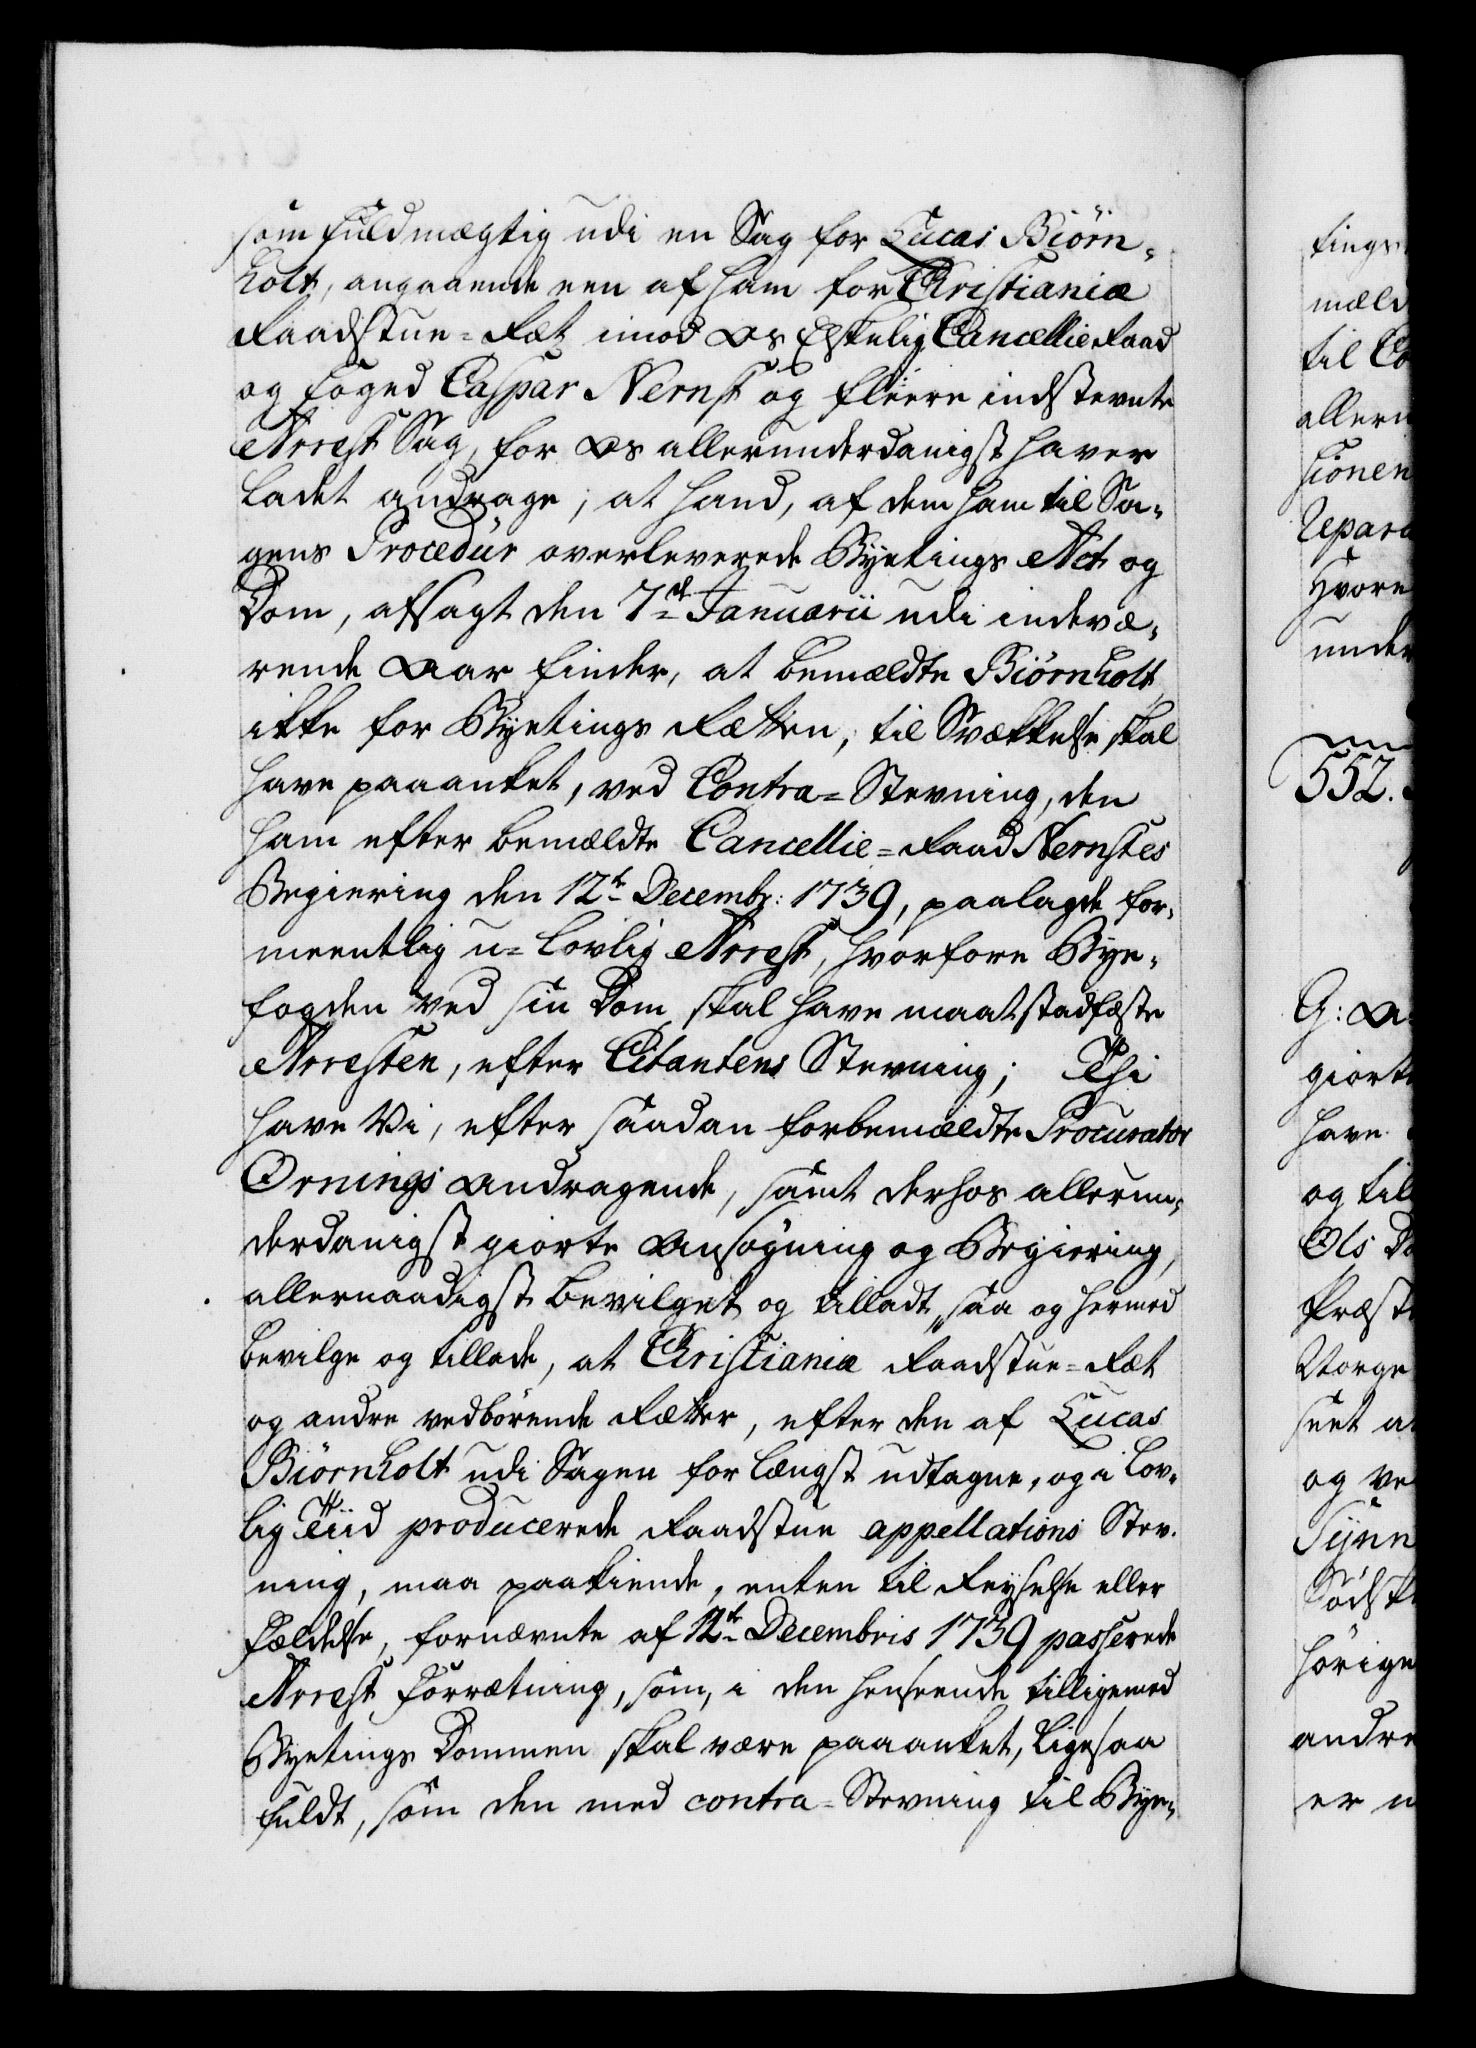 som Fuldmægtig udi en Sag for Lucas Biørn-
holt, angaaende een af ham for Christianiæ
Raadstue-Ræt imod Os Elskelig Cancellie Raad
og Foged Caspar Nernst og fleere indstevnte
Arrest Sag, for Os allerunderdanigst haver
ladet andrage, at hand, af dem ham til Sa-
gens Procedür overleverede Byetings Act og
Dom, afsagt den 7de Januarii udi indevæ-
rende Aar finder, at bemældte Biørnholt
ikke for Byetings Rætten, til Svækkelse skal
have paaanket, ved Contra-Stevning, den
ham efter bemældte Cancellie-Raad Nernstes
Begiering den 12te Decembr: 1739, paalagde for-
meentlig u-lovlig Arrest, hvorfore Bye-
fogden ved sin Dom skal have maat stadfæste
Arresten, efter Citantens Stevning; Thi
have Vi, efter saadan forbemældte Procurator
Ornings Andragende, samt derhos allerun-
derdanigst giorte Ansøgning og Begiering,
allernaadigst bevilget og tilladt, saa og hermed
bevilge og tillade, at Christianiæ Raadstue-Ræt
og andre vedbørende Rætter, efter den af Lucas
Biørnholt udi Sagen for længst udtagne, og i lov-
lig Tiid producerede Raadstue appellations Stev-
ning, maa paakiende, enten til Reyselse eller
Fældelse, fornævnte af 12te Decembris 1739 passerede
Arrest Forrætning, som, i den henseende tilligemed
Byetings Dommen skal være paaanket, ligesaa
fuldt, som den med contra-Stevning til Bye-
tings
mæld
til Co
allern
sionen
Repara
Hvore
under
552.
G: A
giorte
have
og til
Ols D
Præst
Norge
seet a
og ve
Synn
Sødsk
hørige
andre
er n